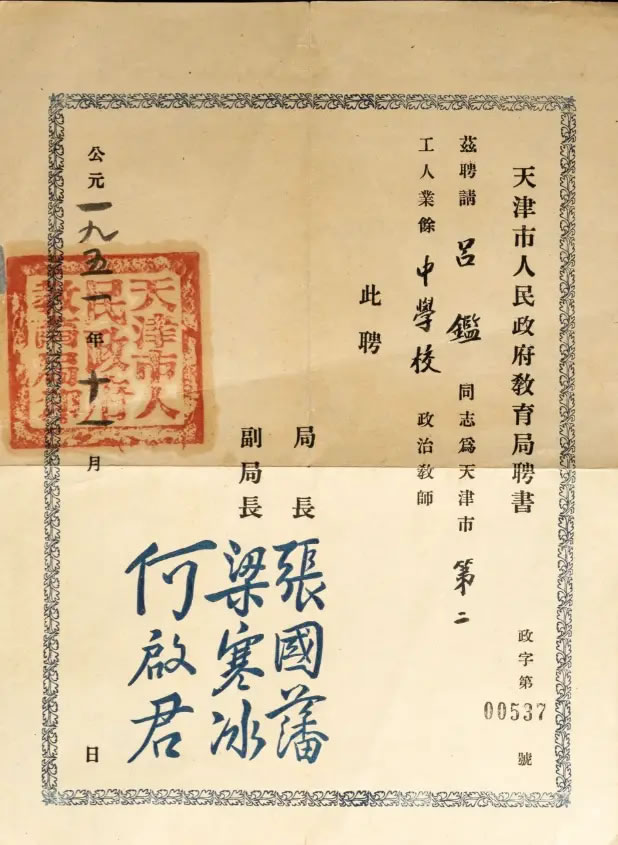 天津市人民政府教育局聘書
政字第00537號
茲聘請呂鑑同志爲天津市第二
工人業餘中學校政治教師
此聘
局長張國藩
副局長梁寒冰
何啟君
公元一九五一年十一月 日
天津市人
民政府
教育局印